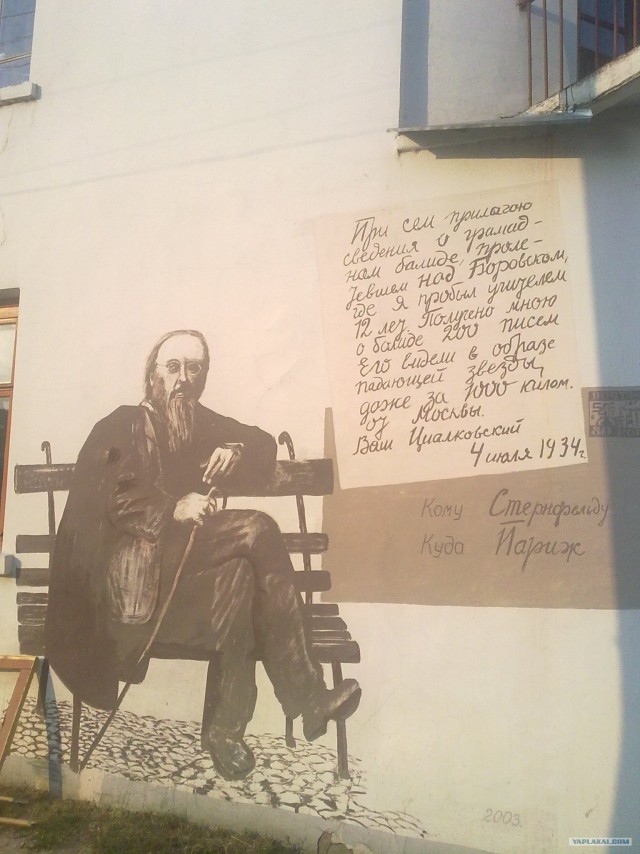 При сем прилагаю
сведения о громад-
ном балиде, проле-
тевшем над Боровском,
где я пробыл учителем
12 лет. Получено мною
о балиде 200 писем
Его видели в образе
падающей звезды,
даже за 1000 килом.
от Москвы.
Ваш Циалковский
4 июля 1934г.
Кому Стернфельду
Куда Париж
2003.
YAPLAKAL.COM